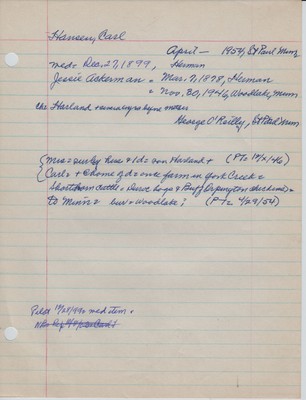 Hansen, Carl
April — 1954, St Paul Minn
med = Dec. 27, 1899, Herman
Jessie Ackerman = Mar. 7, 1878, Herman
= Nov. 30, 1946, Woodlake, Minn
chs Harland +
George O'Reilly, St Paul Minn
(Mrs = early res & Id = nr Harland + (PT = 12/5/46)
(Carl = + home of d = once farm in York Creek =
Shorthorn cattle = Duroc hogs & Buff Orpington chickens =
to Minn = bur = Woodlake; (PT = 4/29/54)
Pilot med item =